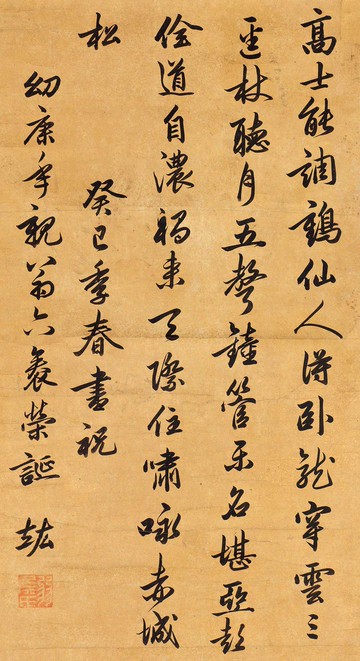 高士能調鶴仙人得臥龍穿雲三
逕杖聽月五聲鐘管樂名堪亞彭
佺道自濃來天際住嘯詠赤城
松
癸巳季春書祝
幼康年親翁六袠榮誕 竑